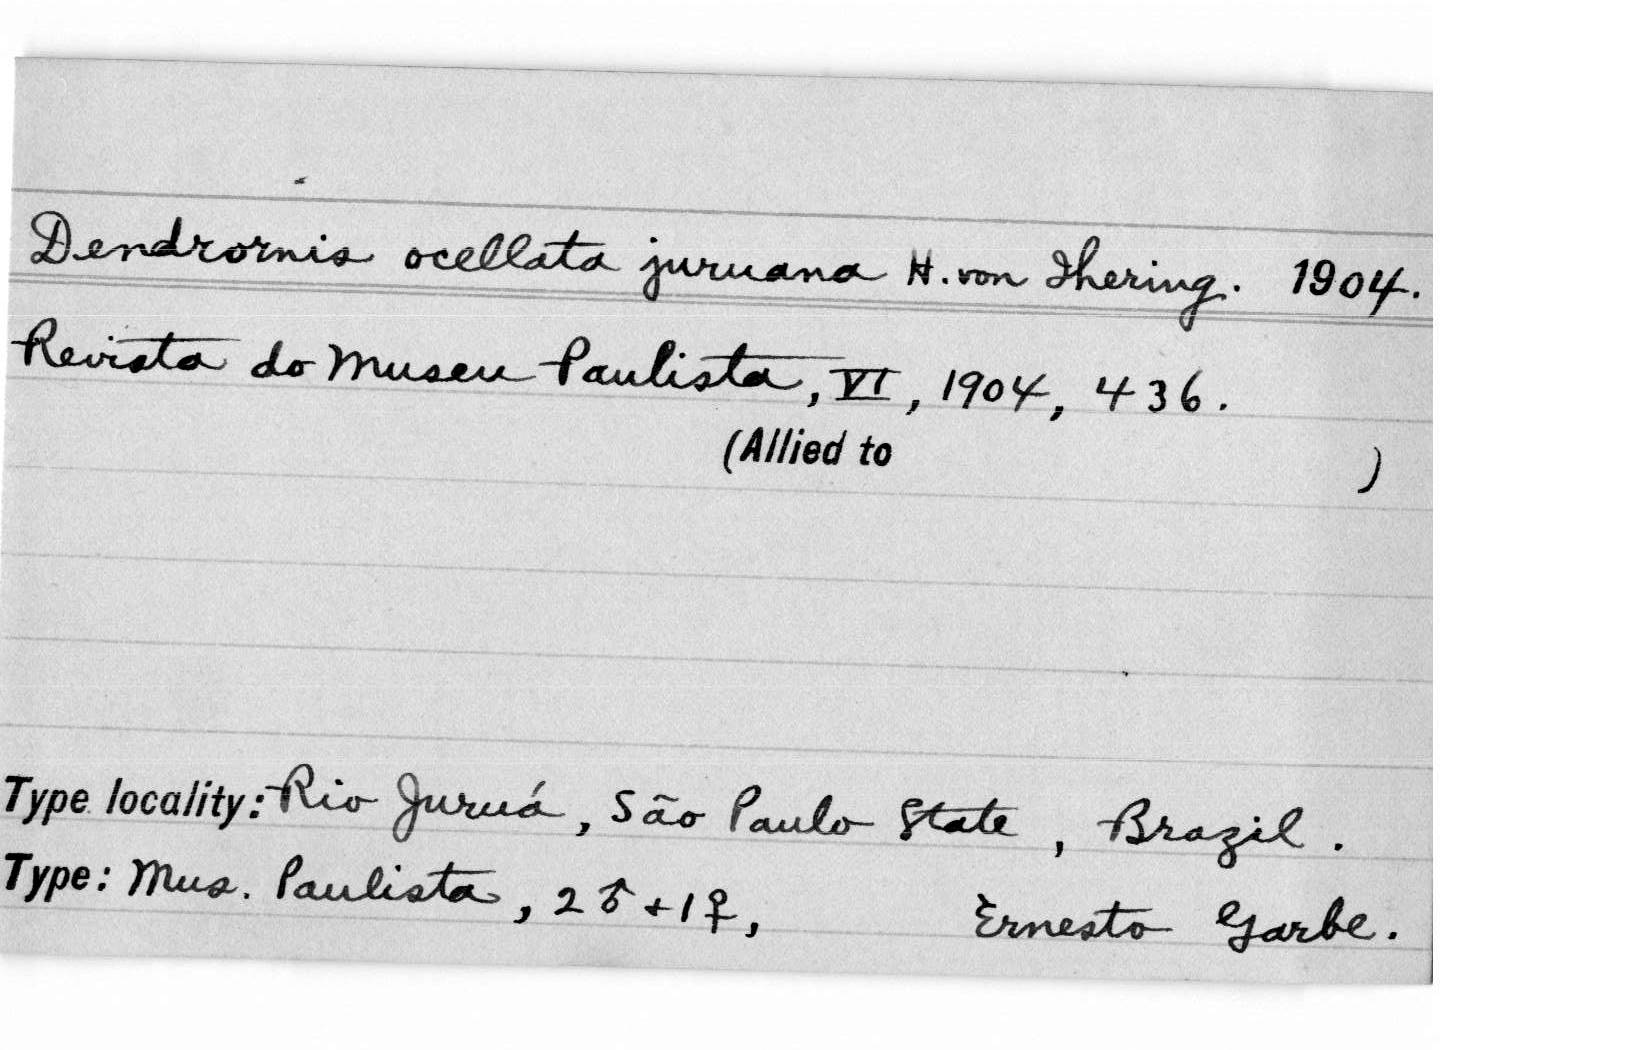 Dendrornis ocellata juruana H. von Ihering. 1904.
Revista do Museu Paulista, VI, 1904, 436.
(Allied to )
Type locality: Rio Juruá, São Paulo State, Brazil.
Type: Mus. Paulista, 2♂+1♀, Ernesto Garbe.